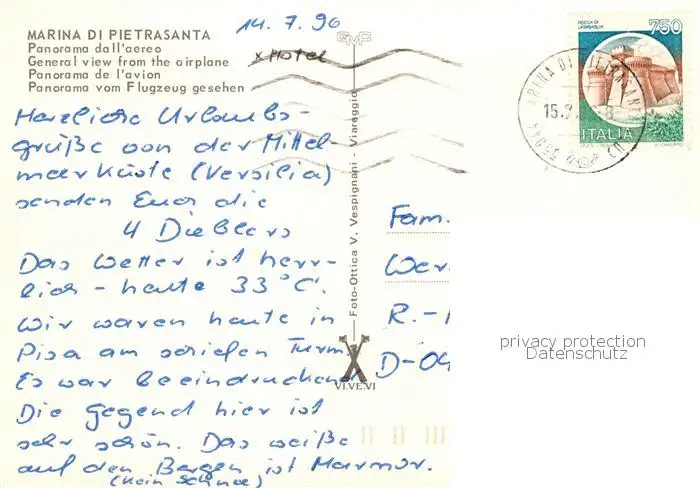 14.7.96
MARINA DI PIETRASANTA
Panorama dall'aereo
General view from the airplane
Panorama de l'avion
Panorama vom Flugzeug gesehen
x Hotel
GMC
Herzliche Urlaubs-
grüße von der Mittel-
meerküste (Versilia)
senden Euch die
4 Dieblers
Das Wetter ist herr-
lich - heute 33°C.
Wir waren heute in
Pisa am schiefen Turm.
Es war beeindruckend
Die Gegend hier ist
sehr schön. Das weiße
auf den Bergen ist Marmor.
(kein Schnee)
Foto-Ottica V. Vespignani - Viareggio
VI.VE.VI
ROCCA DI URBISAGLIA
750
ITALIA
MARINA DI PIETRASANTA
15.7.
55044
Fam.
Wer
R.-
D-04
privacy protection
Datenschutz